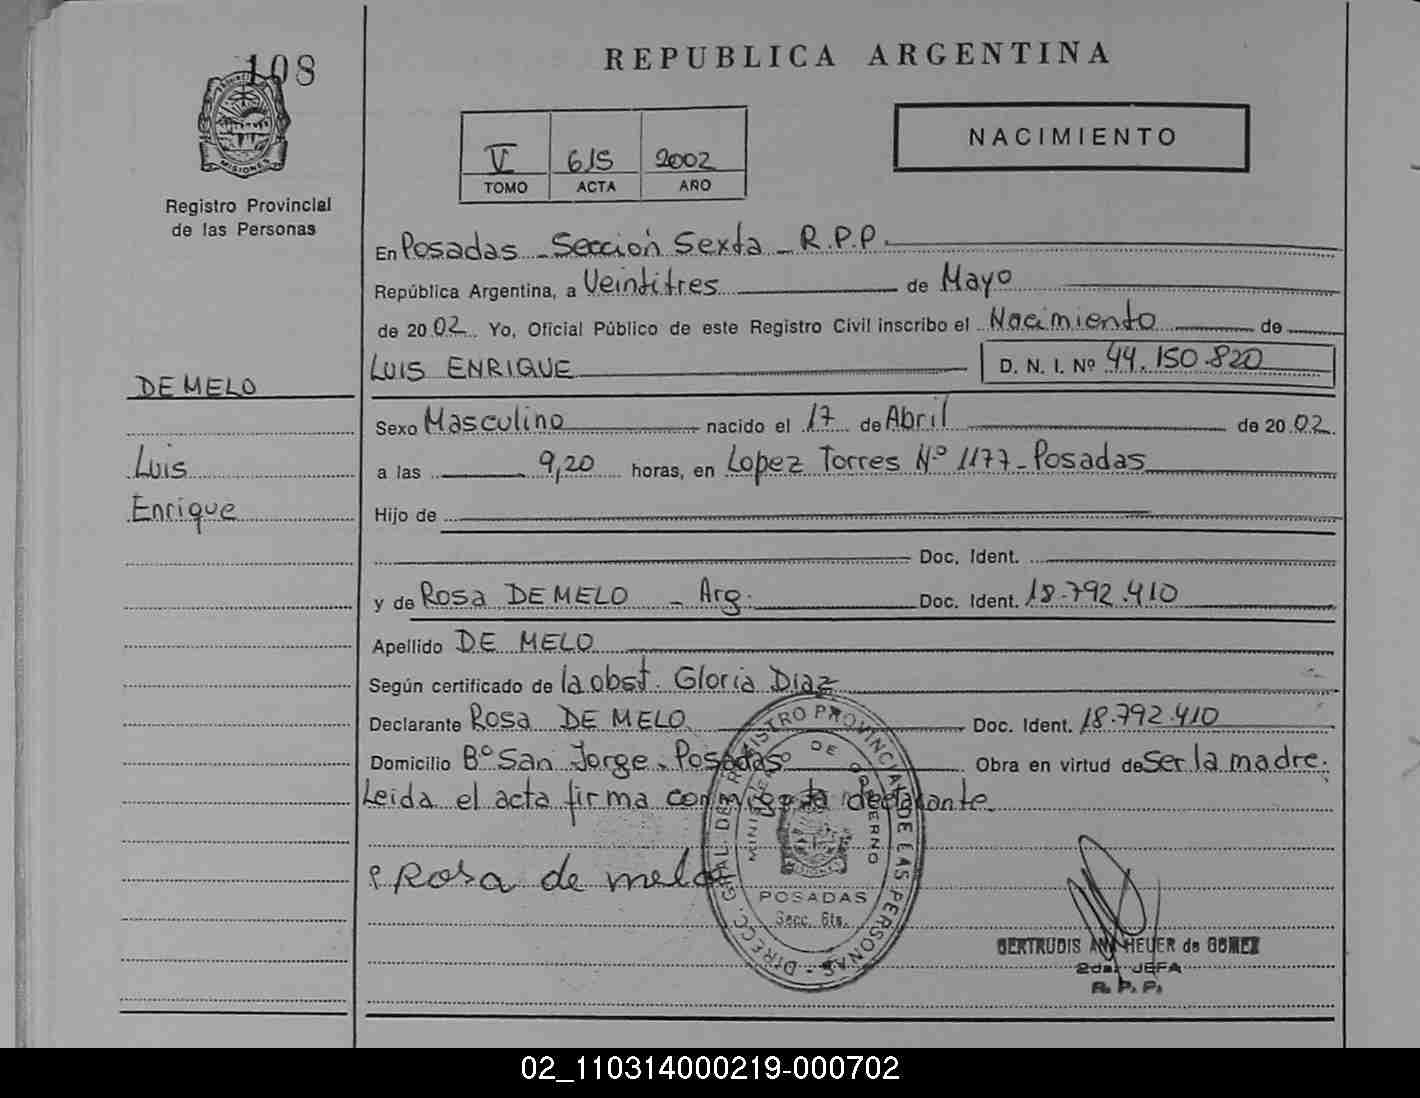 108
REPUBLICA ARGENTINA
MISIONES
Registro Provincial
de las Personas
V 615 2002
TOMO ACTA AÑO
NACIMIENTO
En Posadas - Sección Sexta - R.P.P.
República Argentina, a Veintitres de Mayo
de 2002. Yo, Oficial Público de este Registro Civil inscribo el Nacimiento de
LUIS ENRIQUE D. N. I. Nº 44.150.820
DE MELO
Luis
Enrique
Sexo Masculino nacido el 17 de Abril de 2002
a las 9,20 horas, en Lopez Torres Nº 1177 - Posadas
Hijo de
Doc. Ident.
y de Rosa DE MELO - Arg. Doc. Ident. 18.792.410
Apellido DE MELO
Según certificado de la obst. Gloria Diaz
Declarante Rosa DE MELO Doc. Ident. 18.792.410
Domicilio Bº San Jorge - Posadas Obra en virtud de Ser la madre.
Leida el acta firma conmigo la declarante.
Rosa de melo
DIRECC. GRAL. DEL REGISTRO PROVINCIAL DE LAS PERSONAS
MINISTERIO DE GOBIERNO
POSADAS
Secc. 6ta.
GERTRUDIS ANA HEUER de GOMEZ
2da. JEFA
R. P. P.
02_110314000219-000702